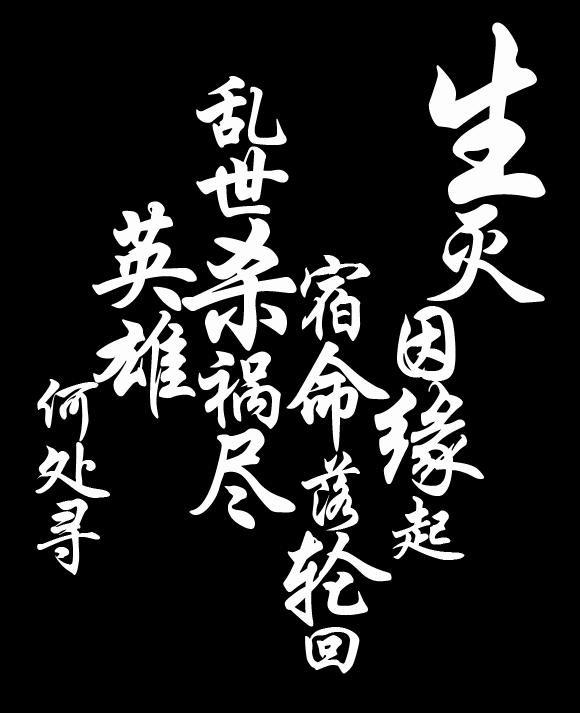 生灭因缘起
宿命落轮回
乱世杀祸尽
英雄何处寻